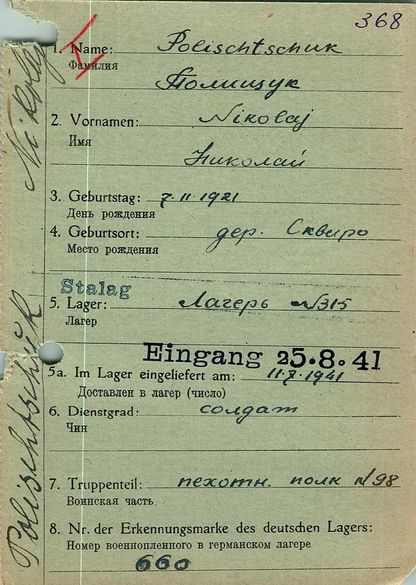 368
1. Name: Polischtschuk
Фамилия
Полищук
2. Vornamen: Nikolaj
Имя
Николай
3. Geburtstag: 7.11.1921
День рождения
4. Geburtsort: дер. Сквиро
Место рождения
Stalag
5. Lager: Лагерь №315
Лагерь
Eingang 25.8.41
5a. Im Lager eingeliefert am: 11.7.1941
Доставлен в лагер (число)
6. Dienstgrad: солдат
Чин
7. Truppenteil: пехотн. полк №98
Воинская часть
8. Nr. der Erkennungsmarke des deutschen Lagers:
Номер военнопленного в германском лагере
660
Polischtschuk Nikolaj